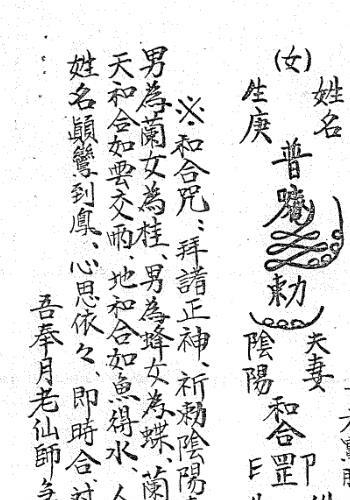 姓名
(女)
生庚
普
勅
夫妻
陰陽
和合
罡
※·和合咒：拜請正神、祈勅陰陽
男為蘭女為桂、男為蜂女為蝶、蘭
天和合如雲交雨、地和合如魚得水、人
姓名顚鸞到鳳、心思依々、即時合
吾奉月老仙師